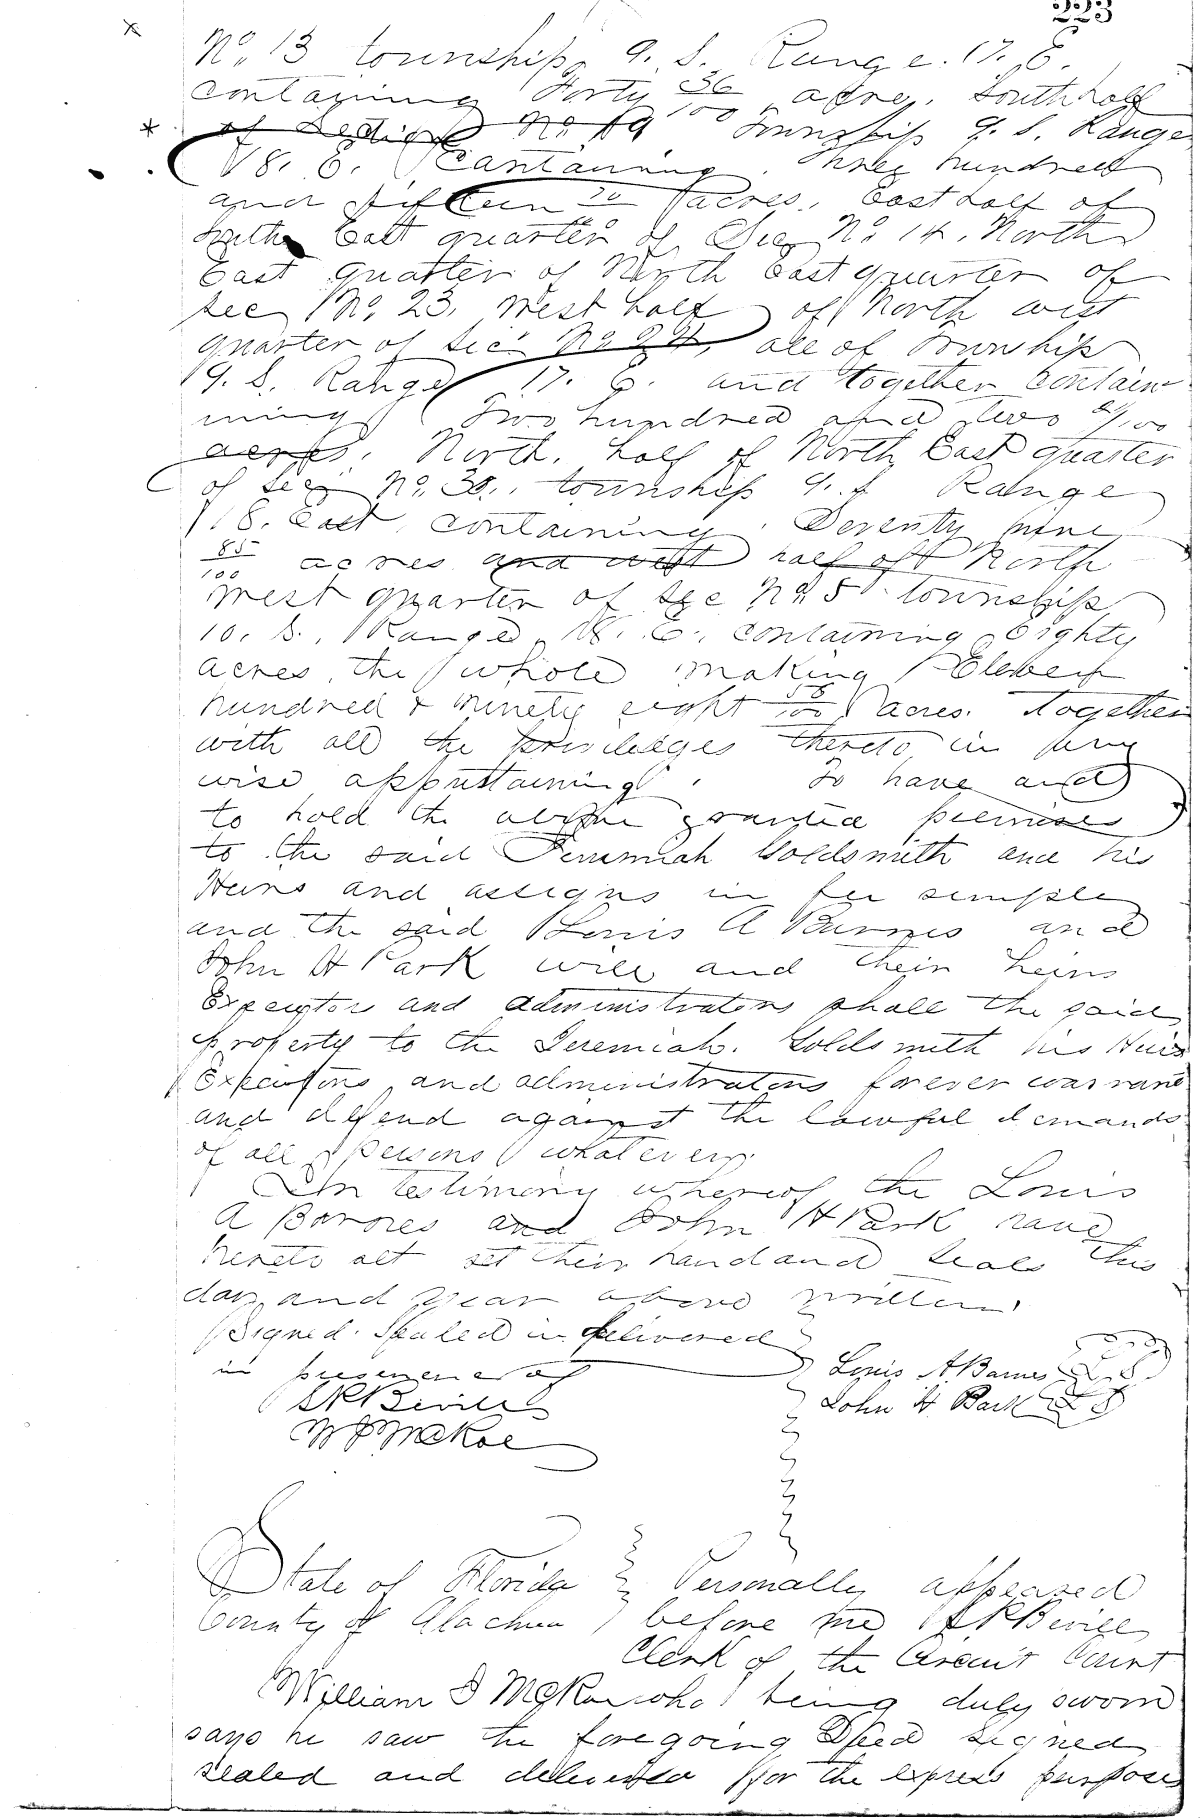 223
No. 13 township 9. S. Range. 17. E.
containing Forty 36/100 acres. South half
of Section No 19 Township 9. S. Range
18. E. Containing. Three hundred
and fifteen acres. East half of
South East quarter of Sec No 14. North
East quarter of North East quarter of
sec No. 23. West half of North west
quarter of Sec No 24, all of Township
9. S. Range 17. E. and together contain
ning Two hundred and two /100
acres. North. half of North East quarter
of sec No. 30. township 9. S Range
18. East, containing. Seventy nine
85/100 acres and west half off North
West quarter of sec No. 5 township
10. S., Range 18. E., containing Eighty
acres, the whole making Eleven
hundred & ninety eight 58/100 acres. Together
with all the priviledges thereto in any
wise appertaining. To have and
to hold the above granted premises
to the said Jeremiah Goldsmith and his
Heirs and assigns in fee simple
and the said Louis A Barnes and
John H Park will and their heirs
Executors and administrators shall the said
property to the Jeremiah. Goldsmith his Heirs
Executors, and administrators forever warrant
and defend against the lawful demands
of all persons whatever.
In testimony whereof the Louis
A Barnes and John H Park have
hereto set their hand and seals this
day and year above written.
Signed. Sealed in delivered
in presence of
Louis A. Barnes L. S.
S K Bevill
John H. Park L S
W J McKoe
State of Florida Personally appeared
County of Alachua before me S K Bevill
Clerk of the Circuit Court
William J McKoe who being duly sworn
says he saw the foregoing Deed signed
sealed and delivered for the express purposes